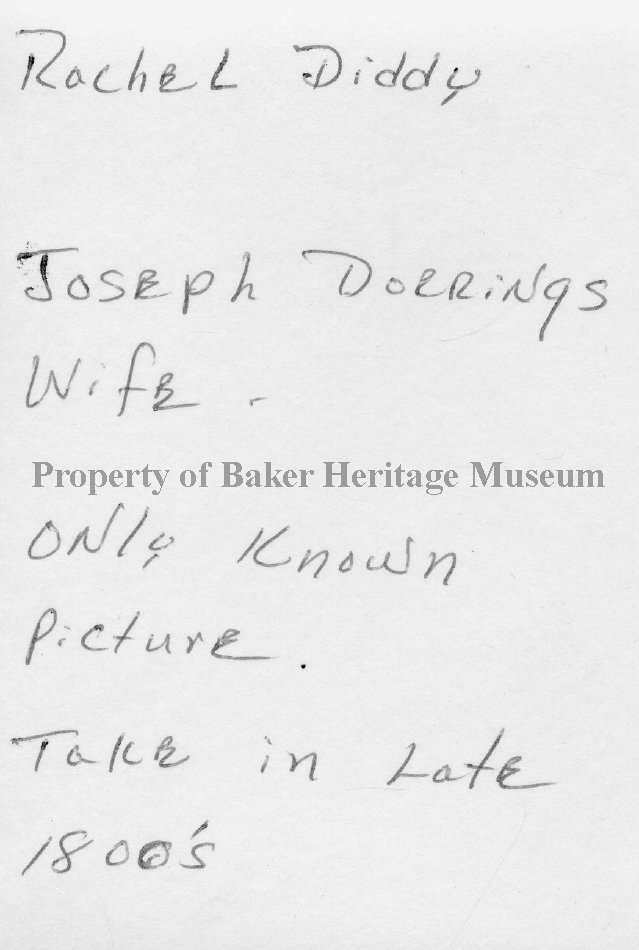 Rachel Diddy
Joseph Doerings
Wife.
Property of Baker Heritage Museum
Only Known
Picture.
Take in Late
1800's